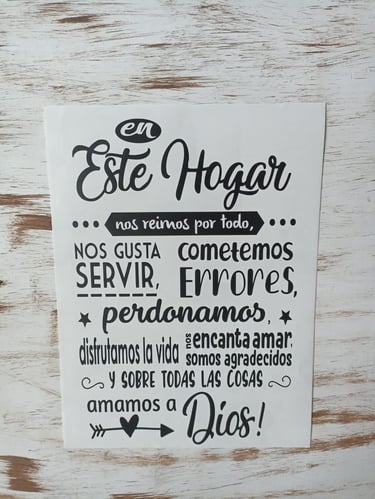 en
Este Hogar
nos reimos por todo,
NOS GUSTA SERVIR,
cometemos Errores,
perdonamos,
disfrutamos la vida
nos encanta amar.
somos agradecidos
Y SOBRE TODAS LAS COSAS
amamos a
Dios!